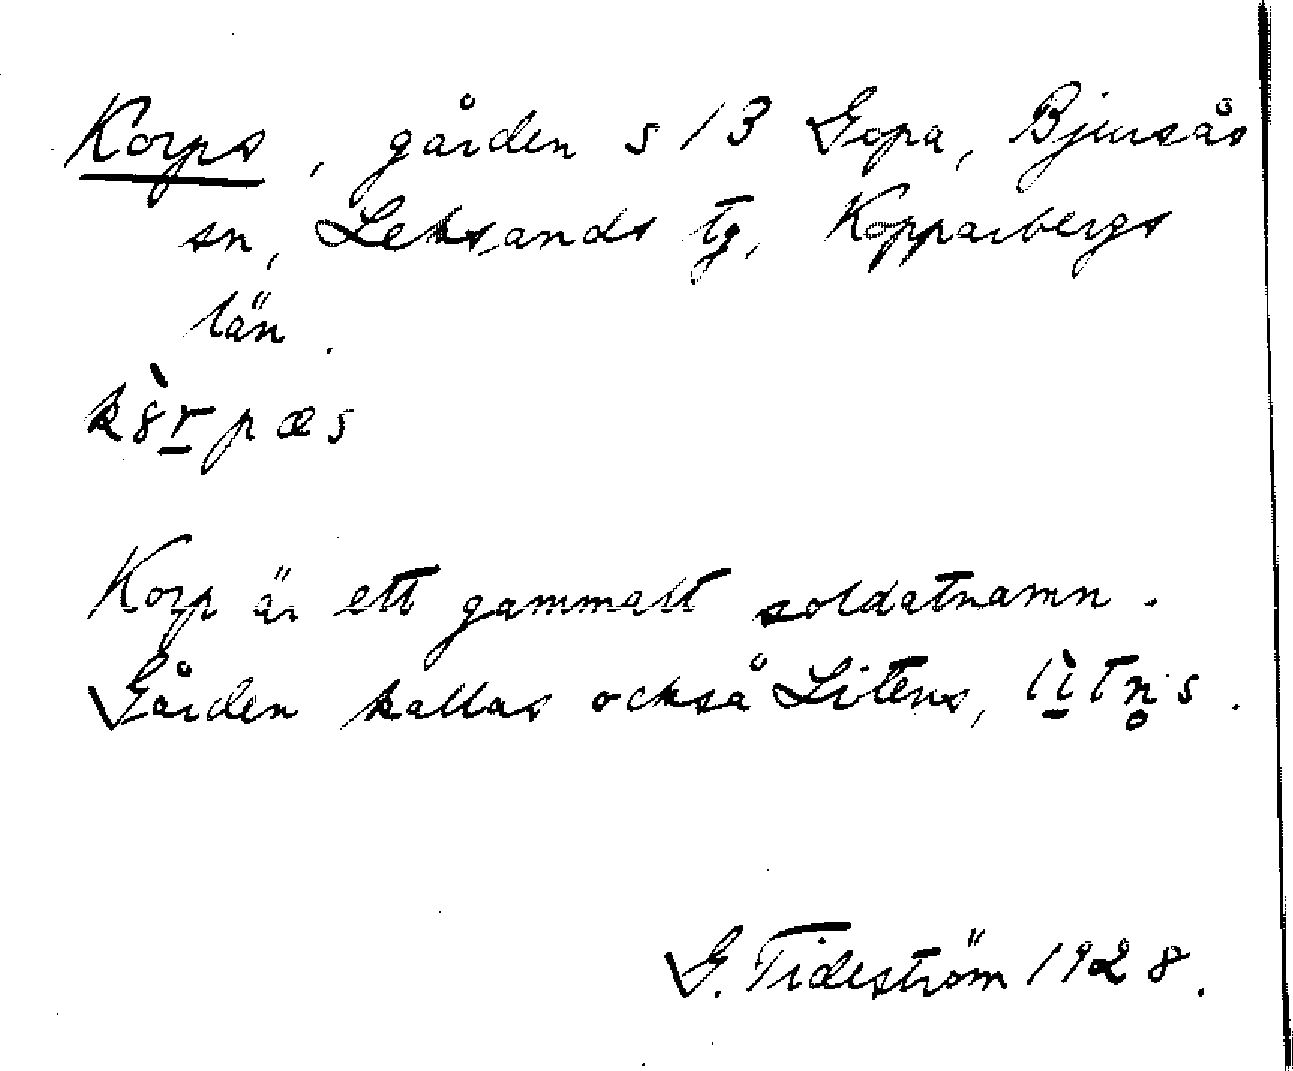 Korps, gården s 13 Gopa, Bjursås
sn, Leksands tg, Kopparbergs
län.
k8̀r̲pæs
Korp är ett gammalt soldatnamn.
Gården kallas också Litens, lì̲tn̥s.
G. Tideström 1928.